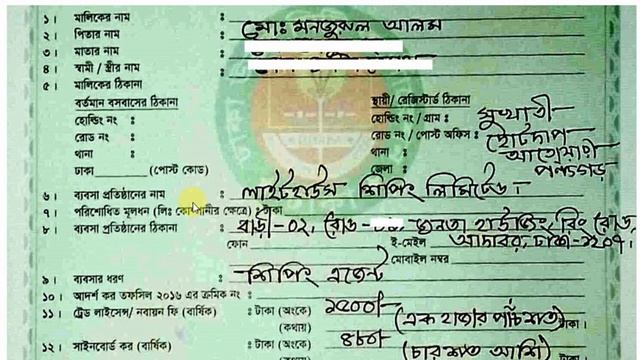 ১। মালিকের নাম : মোঃ মনজুরুল আলম
২। পিতার নাম :
৩। মাতার নাম :
৪। স্বামী / স্ত্রীর নাম :
৫। মালিকের ঠিকানা
বর্তমান বসবাসের ঠিকানা স্থায়ী / রেজিস্টার্ড ঠিকানা
হোল্ডিং নং : হোল্ডিং নং / গ্রাম : সুখাতী
রোড নং : রোড নং / পোস্ট অফিস : ছোটদাপ
থানা : থানা : আটোয়ারী
ঢাকা (পোস্ট কোড) জেলা : পঞ্চগড়
৬। ব্যবসা প্রতিষ্ঠানের নাম : লাইটহাউস শিপিং লিমিটেড।
৭। পরিশোধিত মূলধন (লিঃ কোম্পানীর ক্ষেত্রে) : টাকা
৮। ব্যবসা প্রতিষ্ঠানের ঠিকানা : বাড়ী-০২, রোড- জনতা হাউজিং, রিং রোড,
ফোন ই-মেইল আদাবর, ঢাকা-১২০৭।
মোবাইল নম্বর
৯। ব্যবসার ধরণ : শিপিং এজেন্ট
১০। আদর্শ কর তফসিল ২০১৬ এর ক্রমিক নং :
১১। ট্রেড লাইসেন্স/ নবায়ন ফি (বার্ষিক) : টাকা (অংকে) ১৫০০/-
(কথায়) (এক হাজার পাঁচশত) টাকা।
১২। সাইনবোর্ড কর (বার্ষিক) : টাকা (অংকে) ৪৮০/-
(চারশত আশি) টাকা।